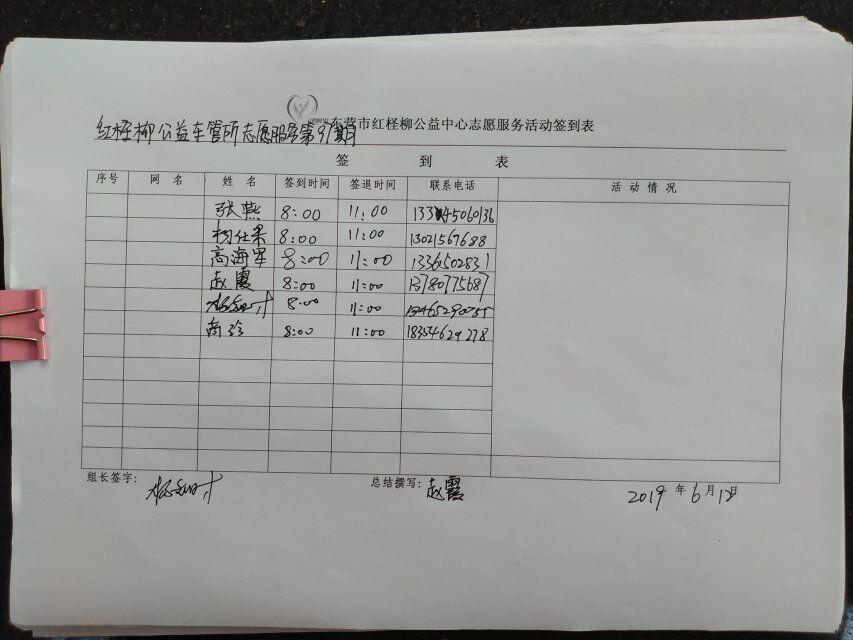 东营市红柽柳公益中心志愿服务活动签到表
红柽柳公益车管所志愿服务第97期
签 到 表
序号 网 名 姓 名 签到时间 签退时间 联系电话 活 动 情 况
张燕 8:00 11:00
杨仕果 8:00 11:00 13021567688
高海军 8:00 11:00 13361502831
赵霞 8:00 11:00 13780775687
8:00 11:00
8:00 11:00 18354629278
组长签字: 总结撰写: 赵霞 2019 年 6 月 12 日